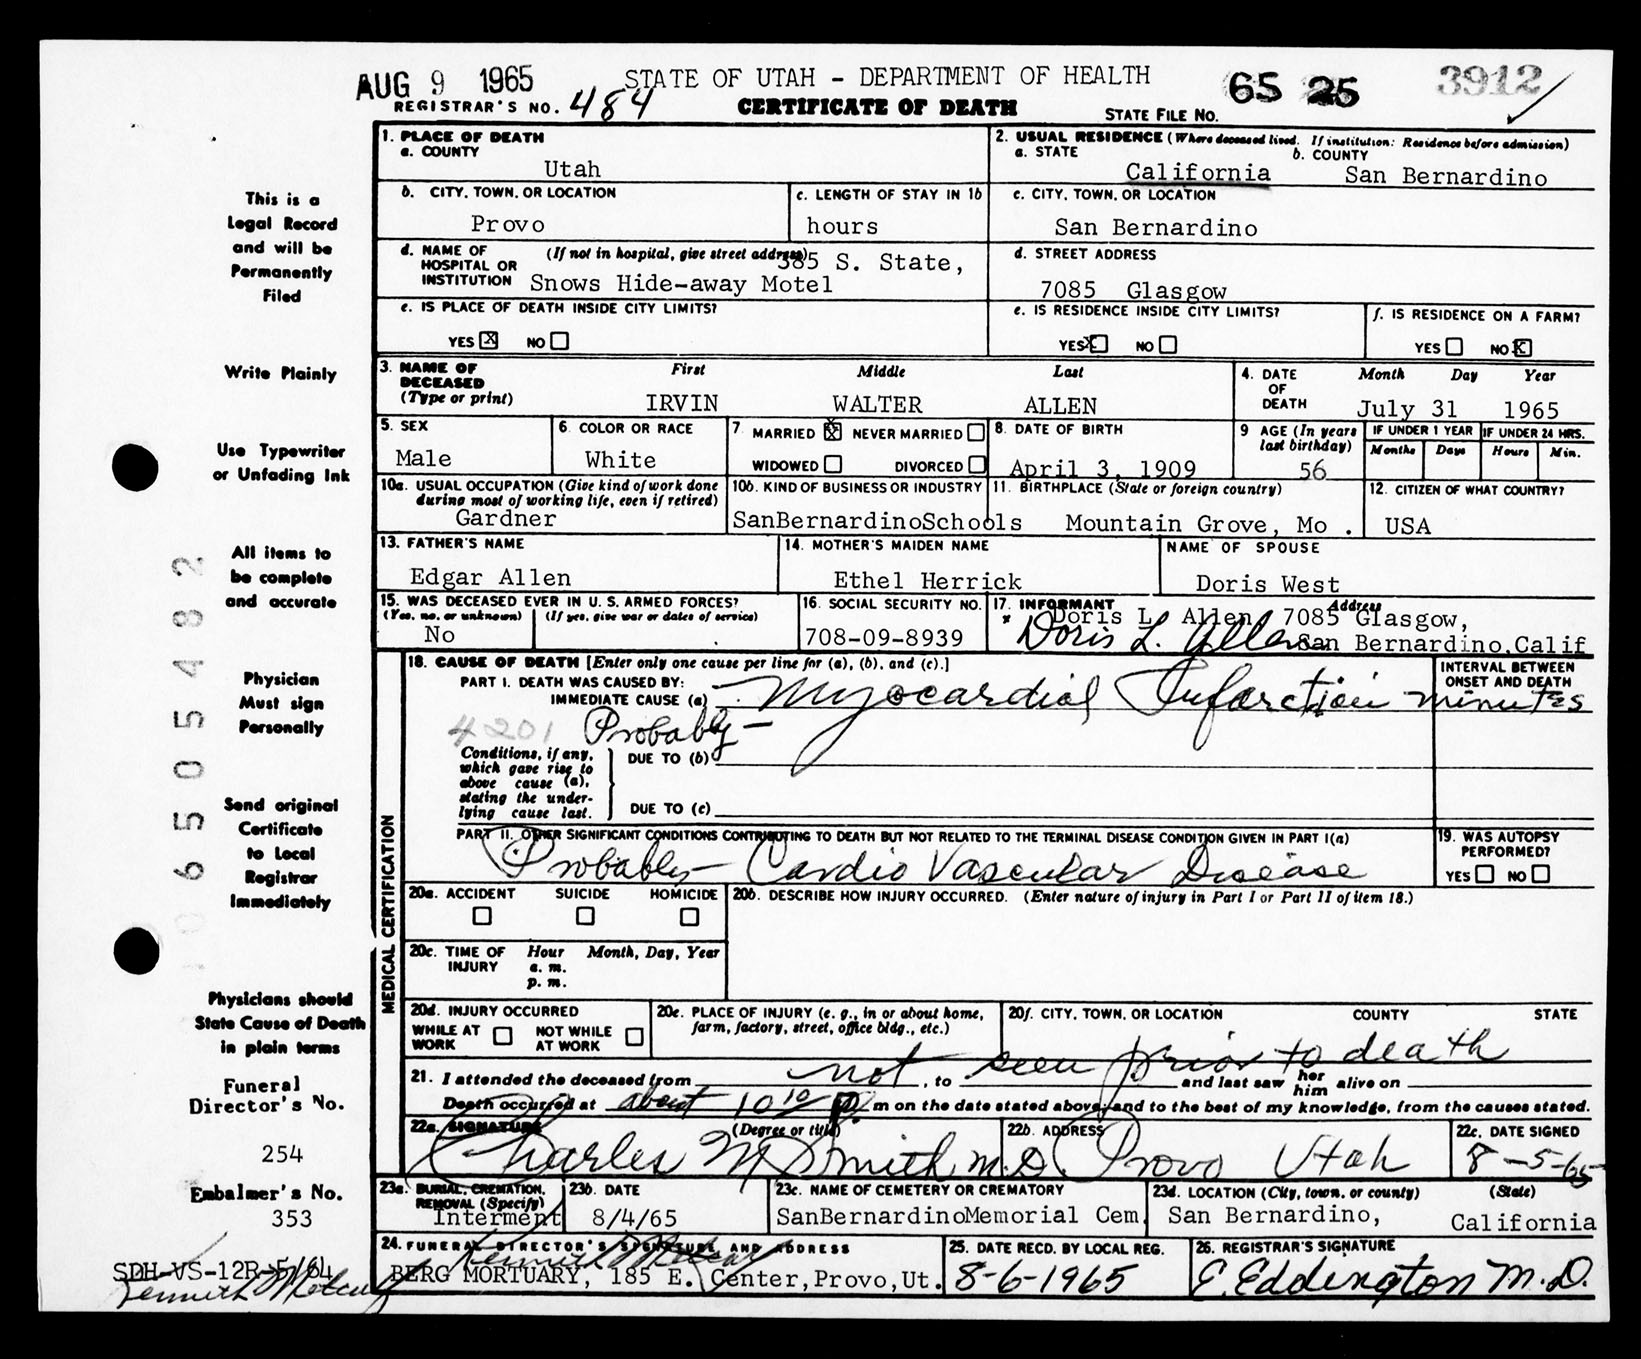 AUG 9 1965 STATE OF UTAH - DEPARTMENT OF HEALTH 65 25 3912
REGISTRAR'S NO. 484 CERTIFICATE OF DEATH STATE FILE NO.
This is a
Legal Record
and will be
Permanently
Filed
Write Plainly
Use Typewriter
or Unfading Ink
All items to
be complete
and accurate
Physician
Must sign
Personally
Send original
Certificate
to Local
Registrar
Immediately
Physicians should
State Cause of Death
in plain terms
Funeral
Director's No.
254
Embalmer's No.
353
SDH-VS-12R-5/64
Kenneth Metcalf
6505482
1. PLACE OF DEATH
a. COUNTY
Utah
b. CITY, TOWN, OR LOCATION
Provo
c. LENGTH OF STAY IN 1b
hours
d. NAME OF HOSPITAL OR INSTITUTION (If not in hospital, give street address)
385 S. State,
Snows Hide-away Motel
e. IS PLACE OF DEATH INSIDE CITY LIMITS?
YES X NO
2. USUAL RESIDENCE (Where deceased lived. If institution: Residence before admission)
a. STATE
California
b. COUNTY
San Bernardino
c. CITY, TOWN, OR LOCATION
San Bernardino
d. STREET ADDRESS
7085 Glasgow
e. IS RESIDENCE INSIDE CITY LIMITS?
YES X NO
f. IS RESIDENCE ON A FARM?
YES NO X
3. NAME OF DECEASED (Type or print)
First Middle Last
IRVIN WALTER ALLEN
4. DATE OF DEATH
Month Day Year
July 31 1965
5. SEX
Male
6. COLOR OR RACE
White
7 MARRIED X NEVER MARRIED
WIDOWED DIVORCED
8. DATE OF BIRTH
April 3, 1909
9 AGE (In years last birthday)
56
IF UNDER 1 YEAR
Months Days
IF UNDER 24 HRS.
Hours Min.
10a. USUAL OCCUPATION (Give kind of work done during most of working life, even if retired)
Gardner
10b. KIND OF BUSINESS OR INDUSTRY
SanBernardinoSchools
11. BIRTHPLACE (State or foreign country)
Mountain Grove, Mo .
12. CITIZEN OF WHAT COUNTRY?
USA
13. FATHER'S NAME
Edgar Allen
14. MOTHER'S MAIDEN NAME
Ethel Herrick
NAME OF SPOUSE
Doris West
15. WAS DECEASED EVER IN U. S. ARMED FORCES?
(Yes, no, or unknown) (If yes, give war or dates of service)
No
16. SOCIAL SECURITY NO.
708-09-8939
17. INFORMANT Address
Doris L. Allen, 7085 Glasgow,
x Doris L. Allen San Bernardino,Calif
MEDICAL CERTIFICATION
18. CAUSE OF DEATH [Enter only one cause per line for (a), (b), and (c).]
INTERVAL BETWEEN ONSET AND DEATH
PART I. DEATH WAS CAUSED BY:
IMMEDIATE CAUSE (a) Myocardial Infarction minutes
4201 Probably-
Conditions, if any, which gave rise to above cause (a), stating the underlying cause last.
DUE TO (b)
DUE TO (c)
PART II. OTHER SIGNIFICANT CONDITIONS CONTRIBUTING TO DEATH BUT NOT RELATED TO THE TERMINAL DISEASE CONDITION GIVEN IN PART I(a)
Probably- Cardio Vascular Disease
19. WAS AUTOPSY PERFORMED?
YES NO
20a. ACCIDENT SUICIDE HOMICIDE
20b. DESCRIBE HOW INJURY OCCURRED. (Enter nature of injury in Part I or Part II of item 18.)
20c. TIME OF INJURY Hour Month, Day, Year
a. m.
p. m.
20d. INJURY OCCURRED
WHILE AT WORK NOT WHILE AT WORK
20e. PLACE OF INJURY (e. g., in or about home, farm, factory, street, office bldg., etc.)
20f. CITY, TOWN, OR LOCATION COUNTY STATE
21. I attended the deceased from not, to seen prior to death and last saw her him alive on
Death occurred at about 10 10 P. m on the date stated above, and to the best of my knowledge, from the causes stated.
22a. SIGNATURE (Degree or title)
Charles M Smith M.D.
22b. ADDRESS
Provo Utah
22c. DATE SIGNED
8-5-65
23a. BURIAL, CREMATION, REMOVAL (Specify)
Interment
23b. DATE
8/4/65
23c. NAME OF CEMETERY OR CREMATORY
SanBernardinoMemorial Cem.
23d. LOCATION (City, town, or county) (State)
San Bernardino, California
24. FUNERAL DIRECTOR'S SIGNATURE AND ADDRESS
Kenneth Metcalf
BERG MORTUARY, 185 E. Center,Provo,Ut.
25. DATE RECD. BY LOCAL REG.
8-6-1965
26. REGISTRAR'S SIGNATURE
E. Eddington M.D.